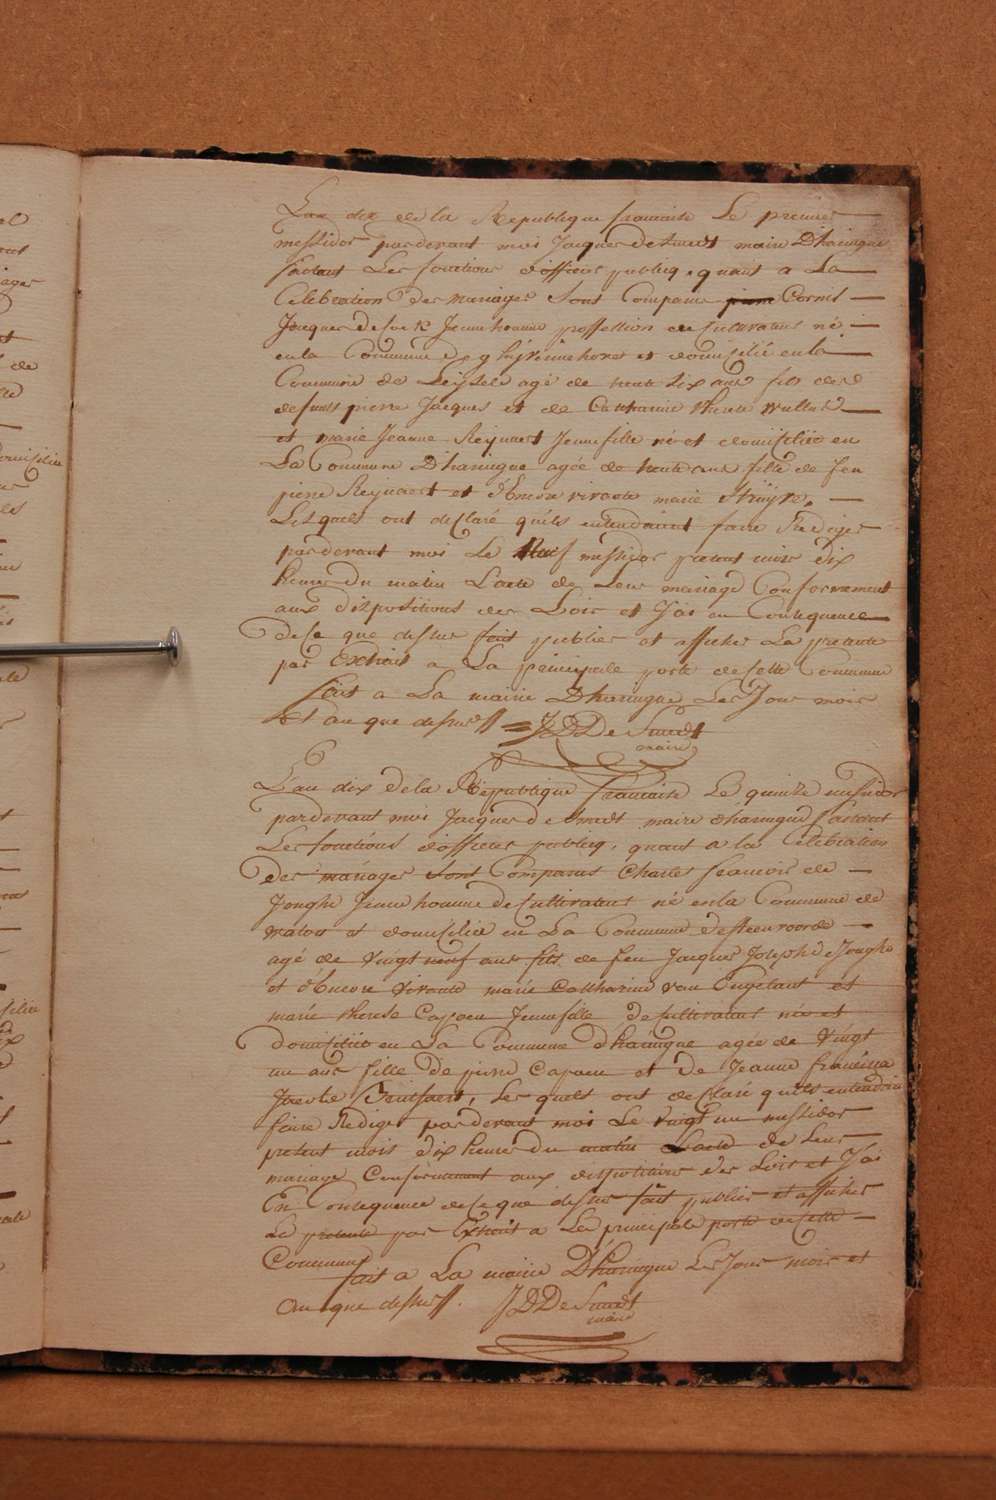 L'an dix de la Republique francaise Le premier
messidor pardevant moi Jacques De Smedt maire D'haringue
faisant Les fonctions d'officier publicq, quant a La
Celebration des mariages Sont Comparus Cornil
Jacques Jeune homme profession de Cultivateur né
en la Commune De ghijvinchove et domicilié en la
Commune de Leijsele agé de trente six ans fils de
defunt pierre Jacques et de Catharine therese
et marie Jeanne Reijnaert Jeune fille né et domicilié en
La Commune D'haringue agée de trente ans fille de feu
pierre Reijnaert et d'Encore vivante marie Strüÿve,
Lesquels ont declaré qu'ils entendaient faire Rediger
pardevant moi Le Neuf messidor present mois dix
heures du matin L'acte de Leur mariage Conformement
aux dispositions des Lois et J'ai en Consequence
de Ce que dessus fait publier et afficher La presente
par Extrait a La principale porte de Cette Commune
fait a La mairie D'haringue Les Jour mois
Et an que dessus JDDe Smedt
maire
L'an dix de la République francaise Le quinze messidor
pardevant moi Jacques De Smedt maire d'haringue faisant
Les fonctions d'officier publicq, quant a la Célebration
des mariages Sont Comparus Charles francois de
Jonghe Jeune homme de Cultivateur né en la Commune de
watou et domicilié en La Commune de Steenvoorde
agé de vingt neuf ans fils de feu Jacques Joseph de Jonghe
et d'Encore vivante marie Catharine van Engelant et
marie therese Capoen Jeune fille de Cultivateur née et
domiciliée en La Commune d'haringue agée de vingt
un ans fille de pierre Capoen et de Jeanne francisca
Jacoba, Les quels ont declaré qu'ils entendaient
faire Rediger pardevant moi Le vingt un messidor
present mois dix heures du matin L'acte de Leur
mariage Conformement aux dispositions des Lois et J'ai
En Consequence de Ce que dessus fait publier et afficher
La presente par Extrait a La principale porte de Cette
Commune
fait a La mairie D'haringue Les Jour mois et
an que dessus. JDDe Smedt
maire